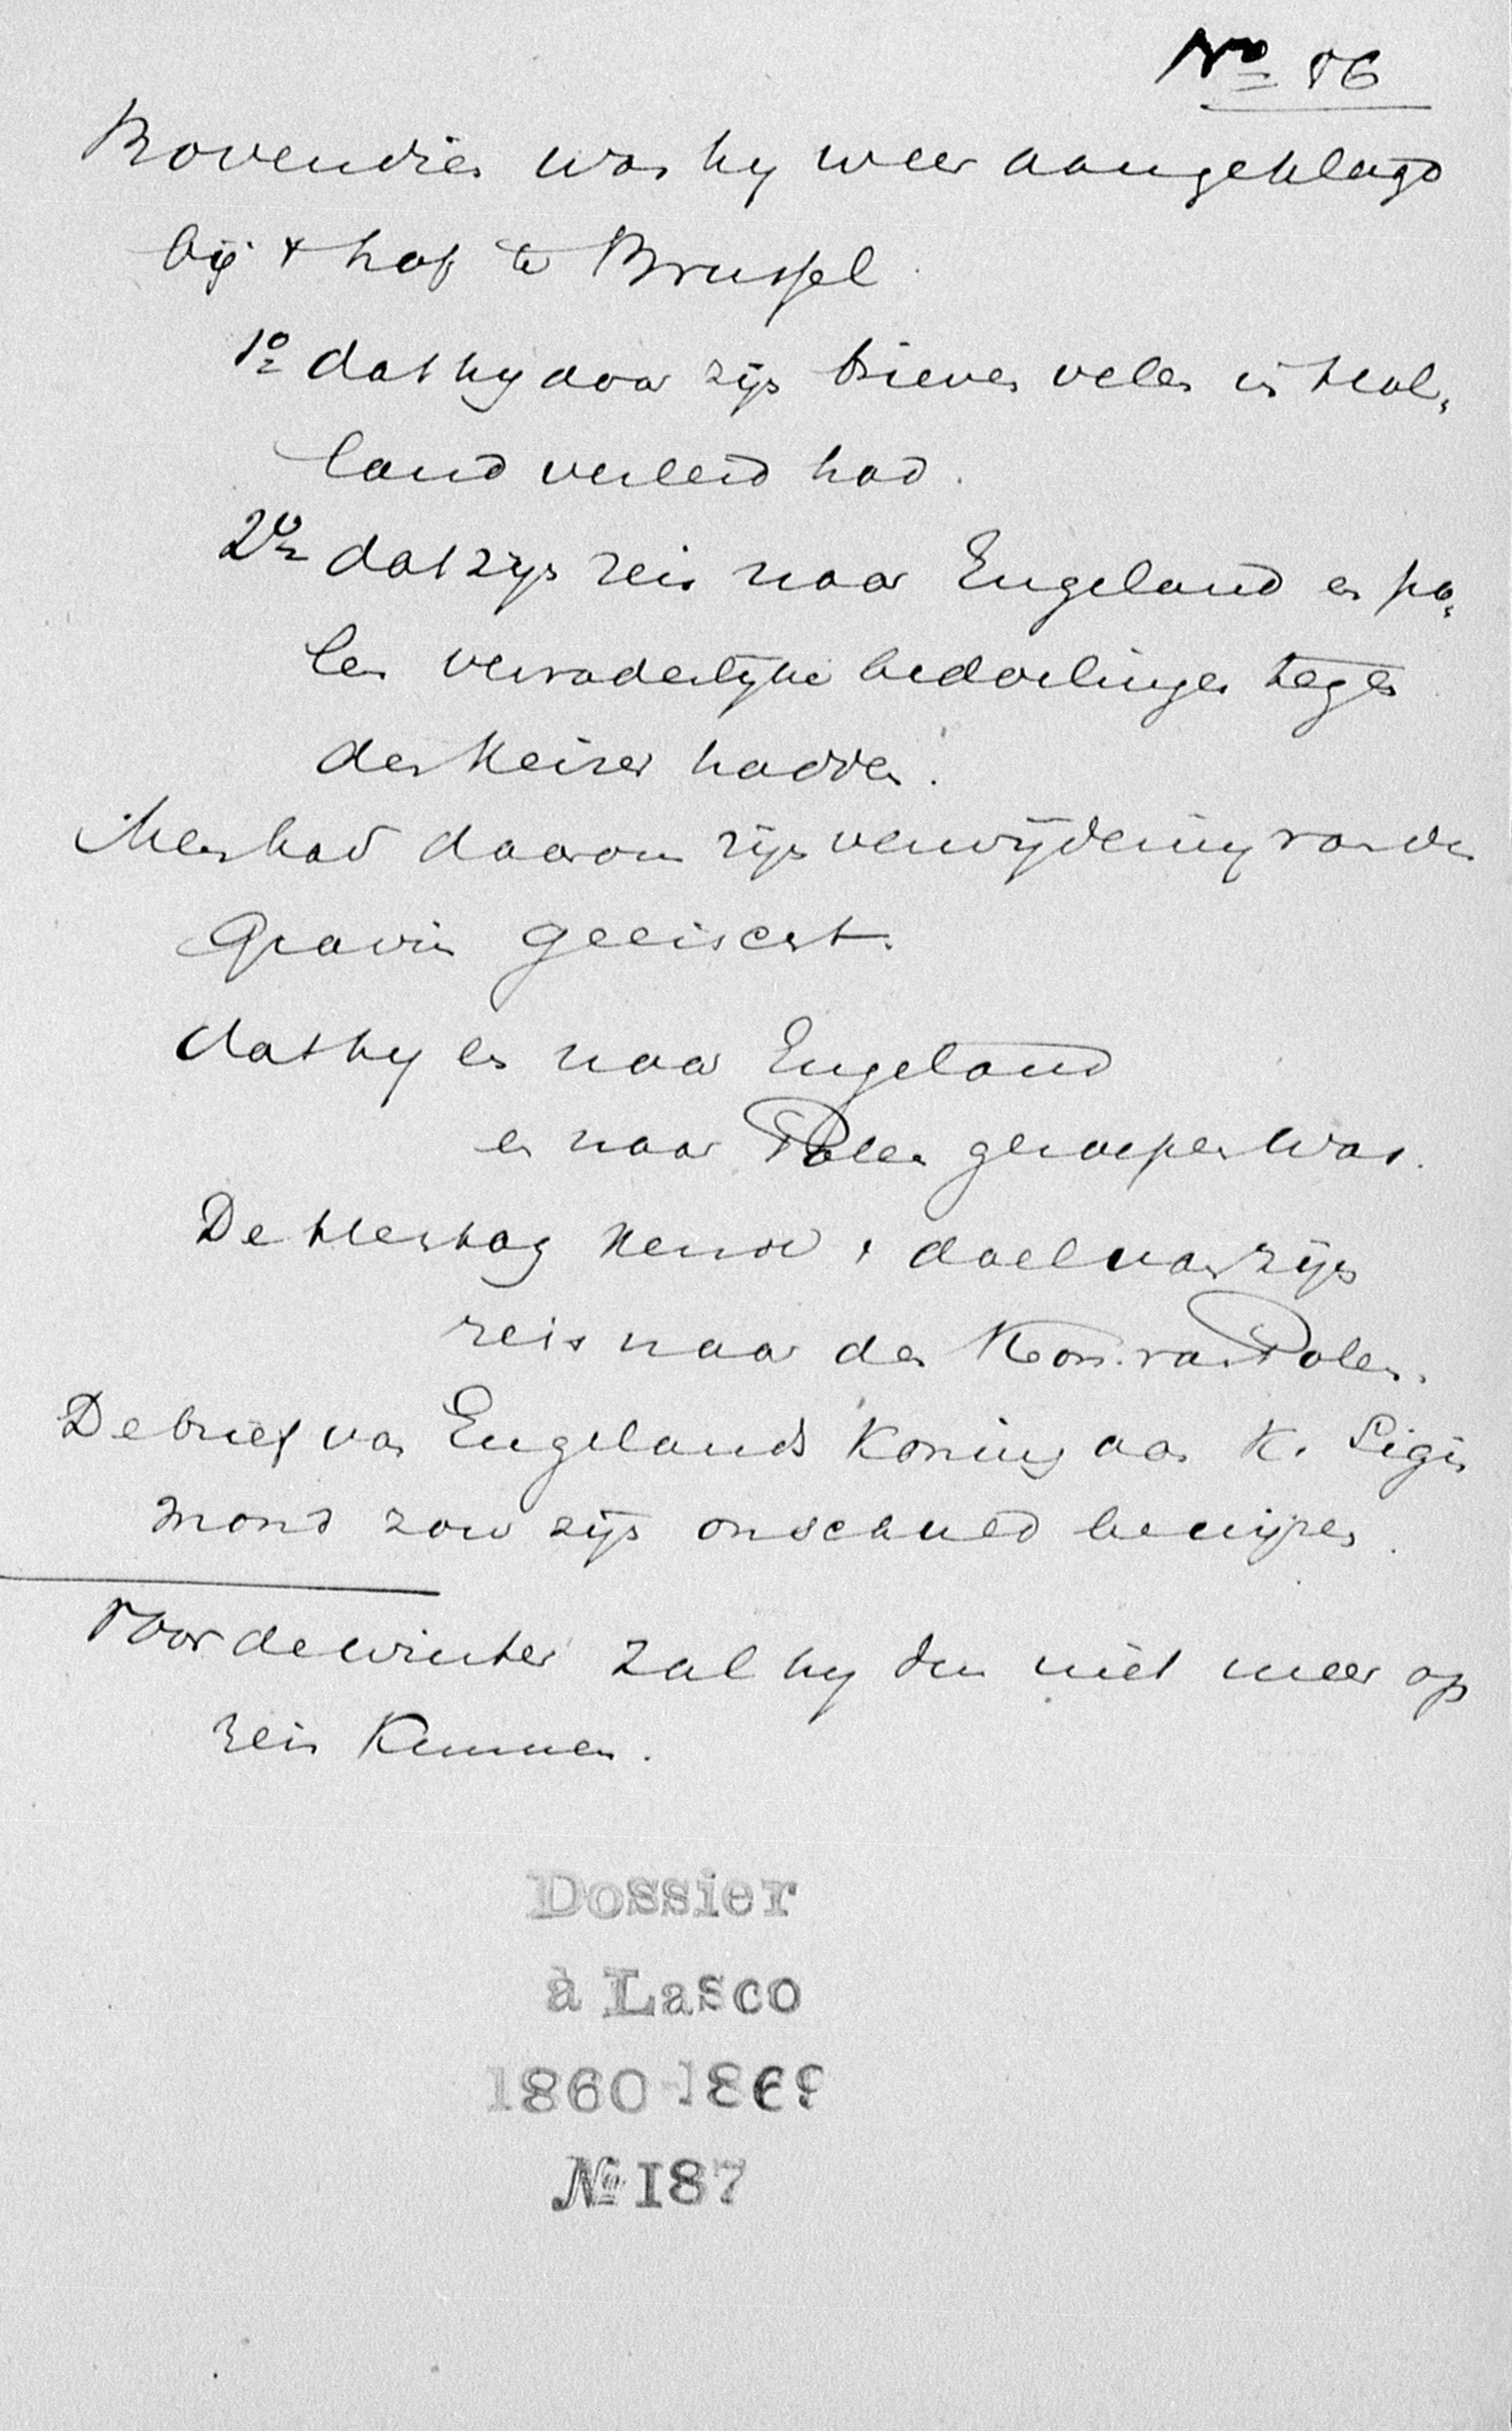 No 86
Bovendien was hy weer aangeklagd
bij 't hof te Brussel
1o dat hy door zijn brieven velen in Hol„
land verleid had.
2o dat zijn reis naar Engeland en po„
len verraderlijke bedoelingen tegen
den Keizer hadden.
Men had daarom zijn verwijdering van de
Gravin geeischt.
dat hy en naar Engeland
en naar Polen geroepen was.
De Hertog kende 't doel van zijn
reis naar den Kon. van Polen.
De brief van Engelands Koning aan K. Sigis
mond zou zijn onschuld bewijzen.
Voor de winter zal hy dus niet meer op
reis kunnen.
Dossier
à Lasco
1860-1869
No 187